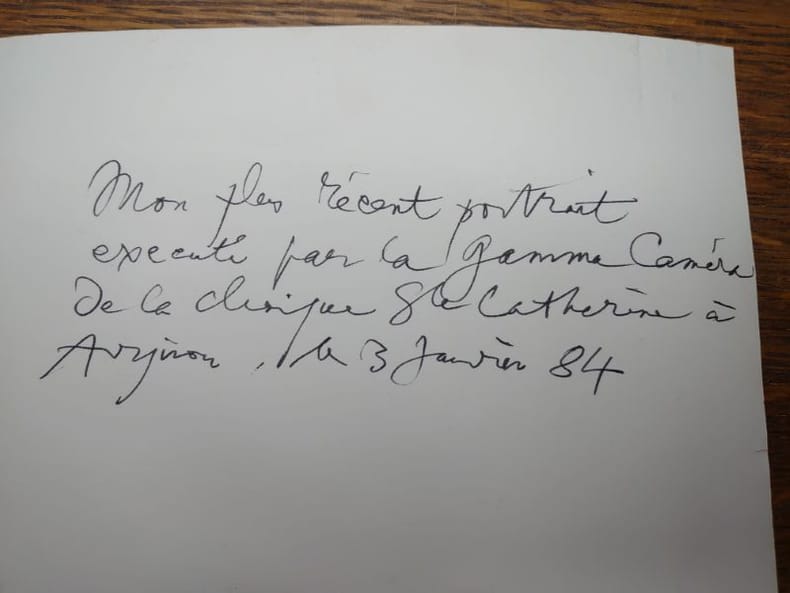 Mon plus récent portrait
executé par la gamma Caméra
De la clinique Ste Catherine à
Avignon, le 3 Janvier 84